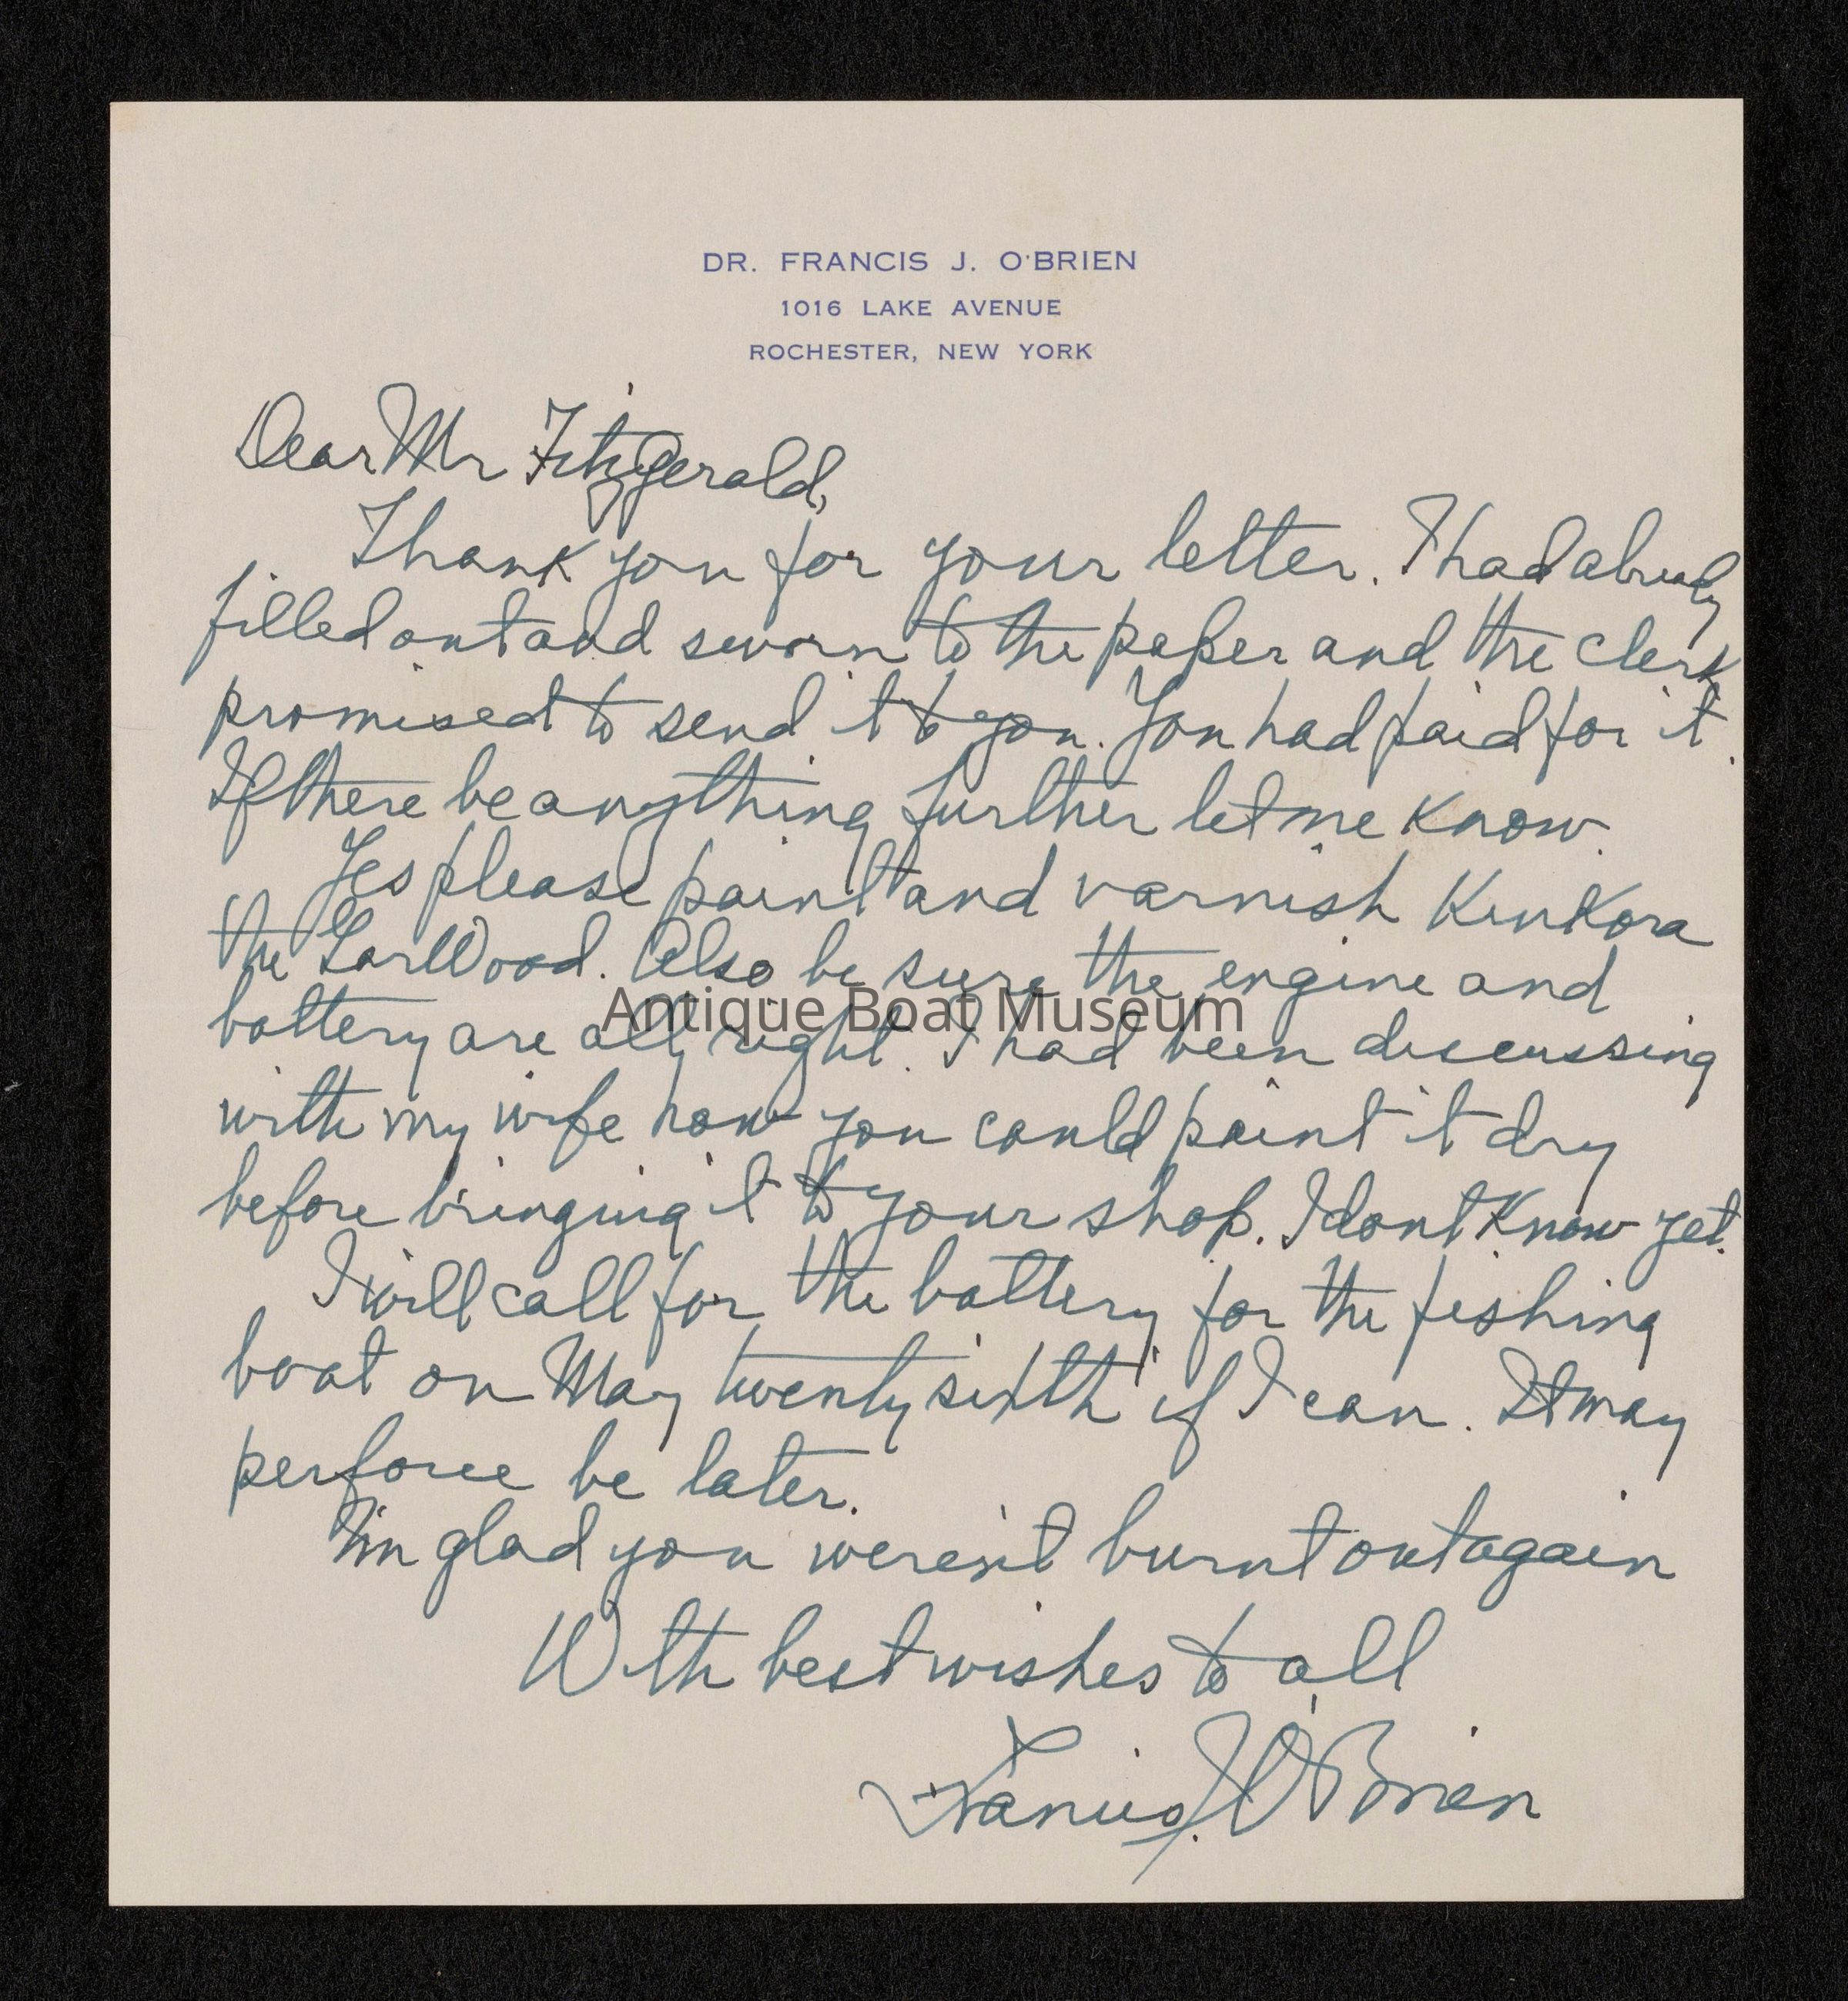 DR. FRANCIS J. O'BRIEN
1016 LAKE AVENUE
ROCHESTER, NEW YORK
Dear Mr Fitzgerald,
Thank you for your letter. I had already
filled out and sworn to the paper and the clerk
promised to send it to you. You had paid for it.
If there be anything further let me know.
Yes please paint and varnish KinKora
the GarWood. Also be sure the engine and
Antique Boat Museum
battery are all right. I had been discussing
with my wife how you could paint it dry
before bringing it to your shop. I dont know yet.
I will call for the battery for the fishing
boat on May twenty sixth if I can. It may
perforce be later.
I'm glad you weren't burnt out again
With best wishes to all
Francis J. O'Brien